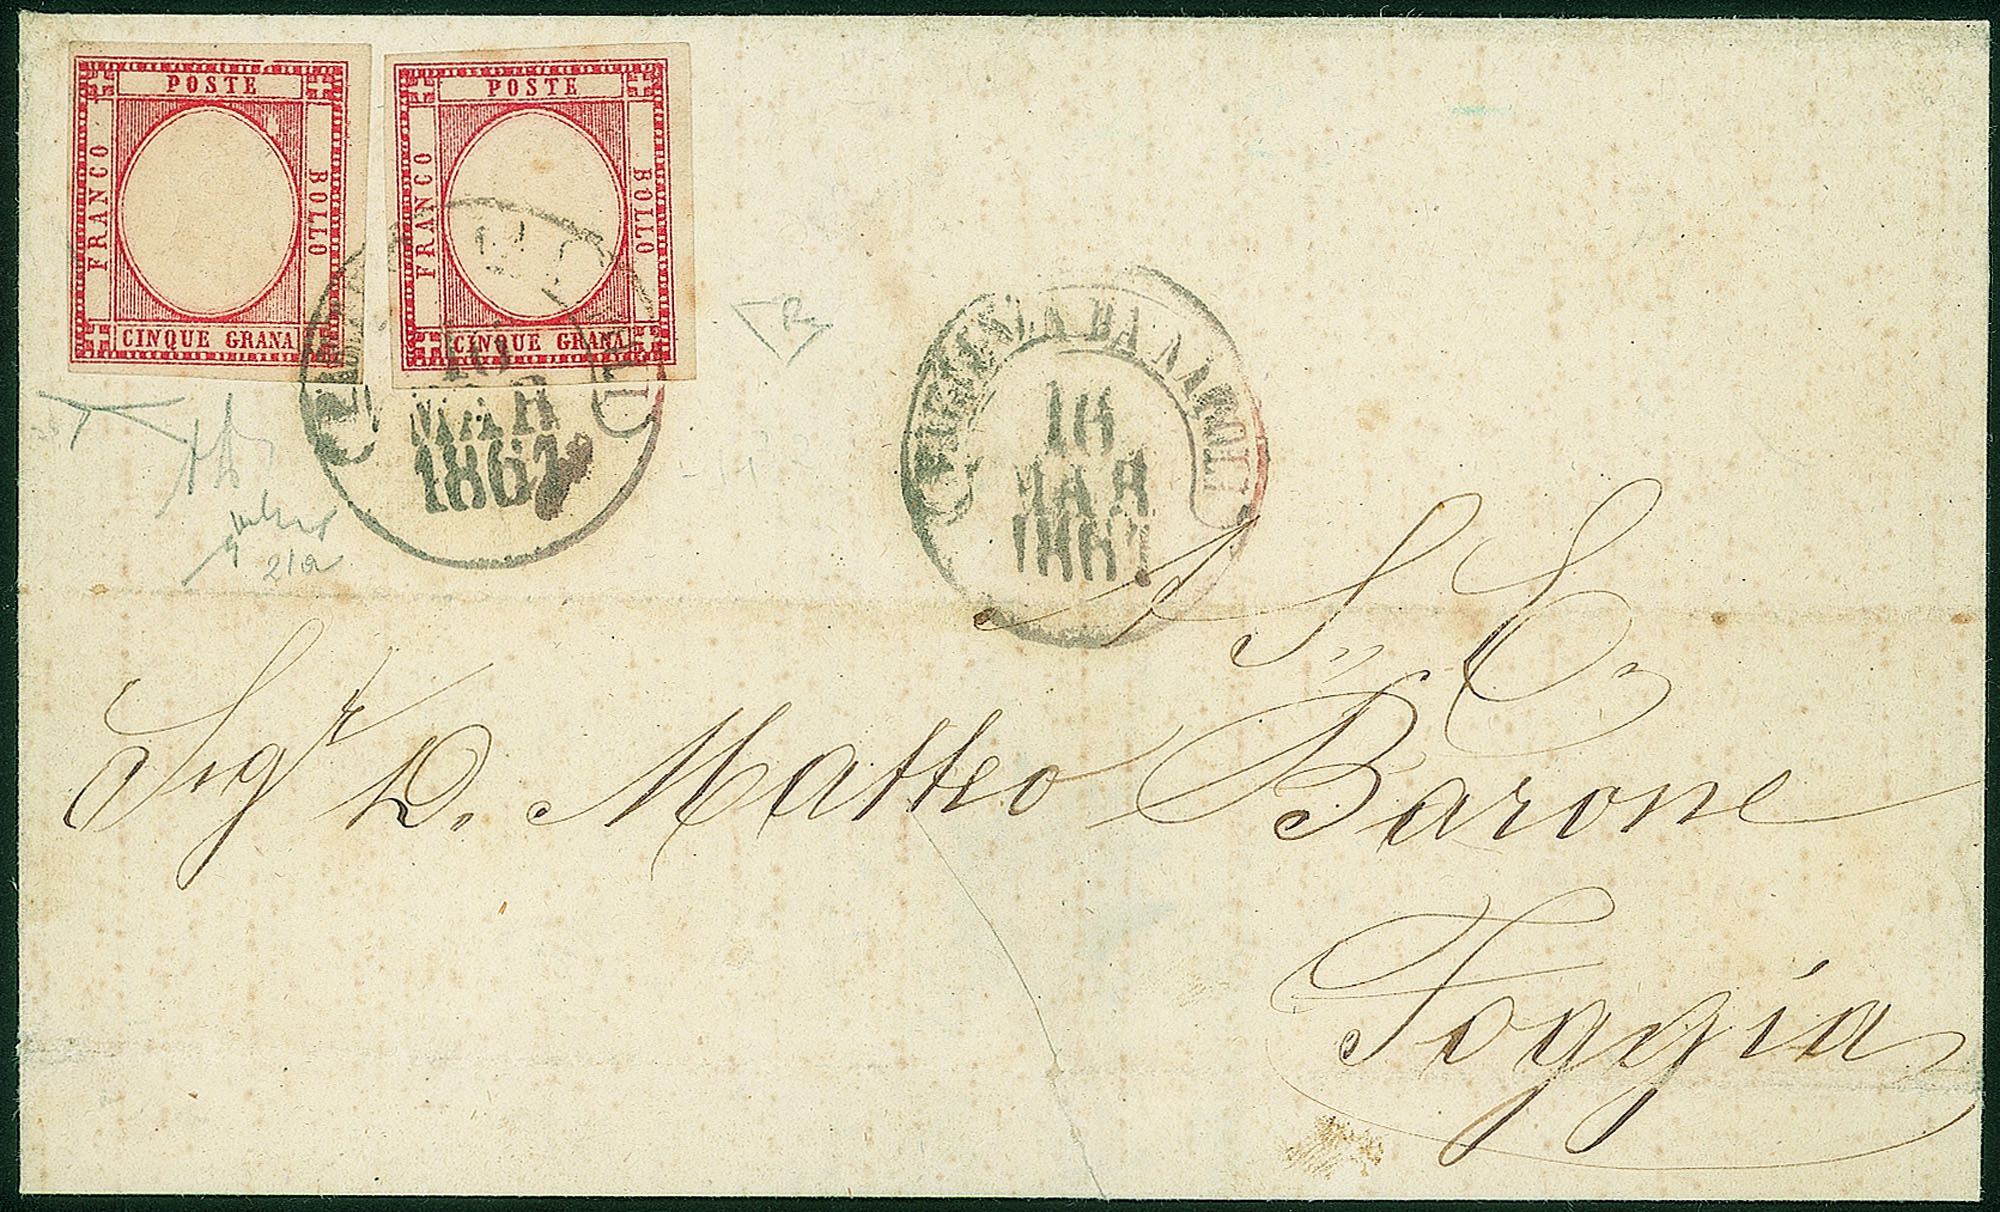 POSTE
FRANCO
BOLLO
CINQUE GRANA
POSTE
FRANCO
BOLLO
CINQUE GRANA
16
MAR
1861
DA NAPOLI
16
MAR
1861
A S. E.
Sigr D. Matteo Barone
Foggia